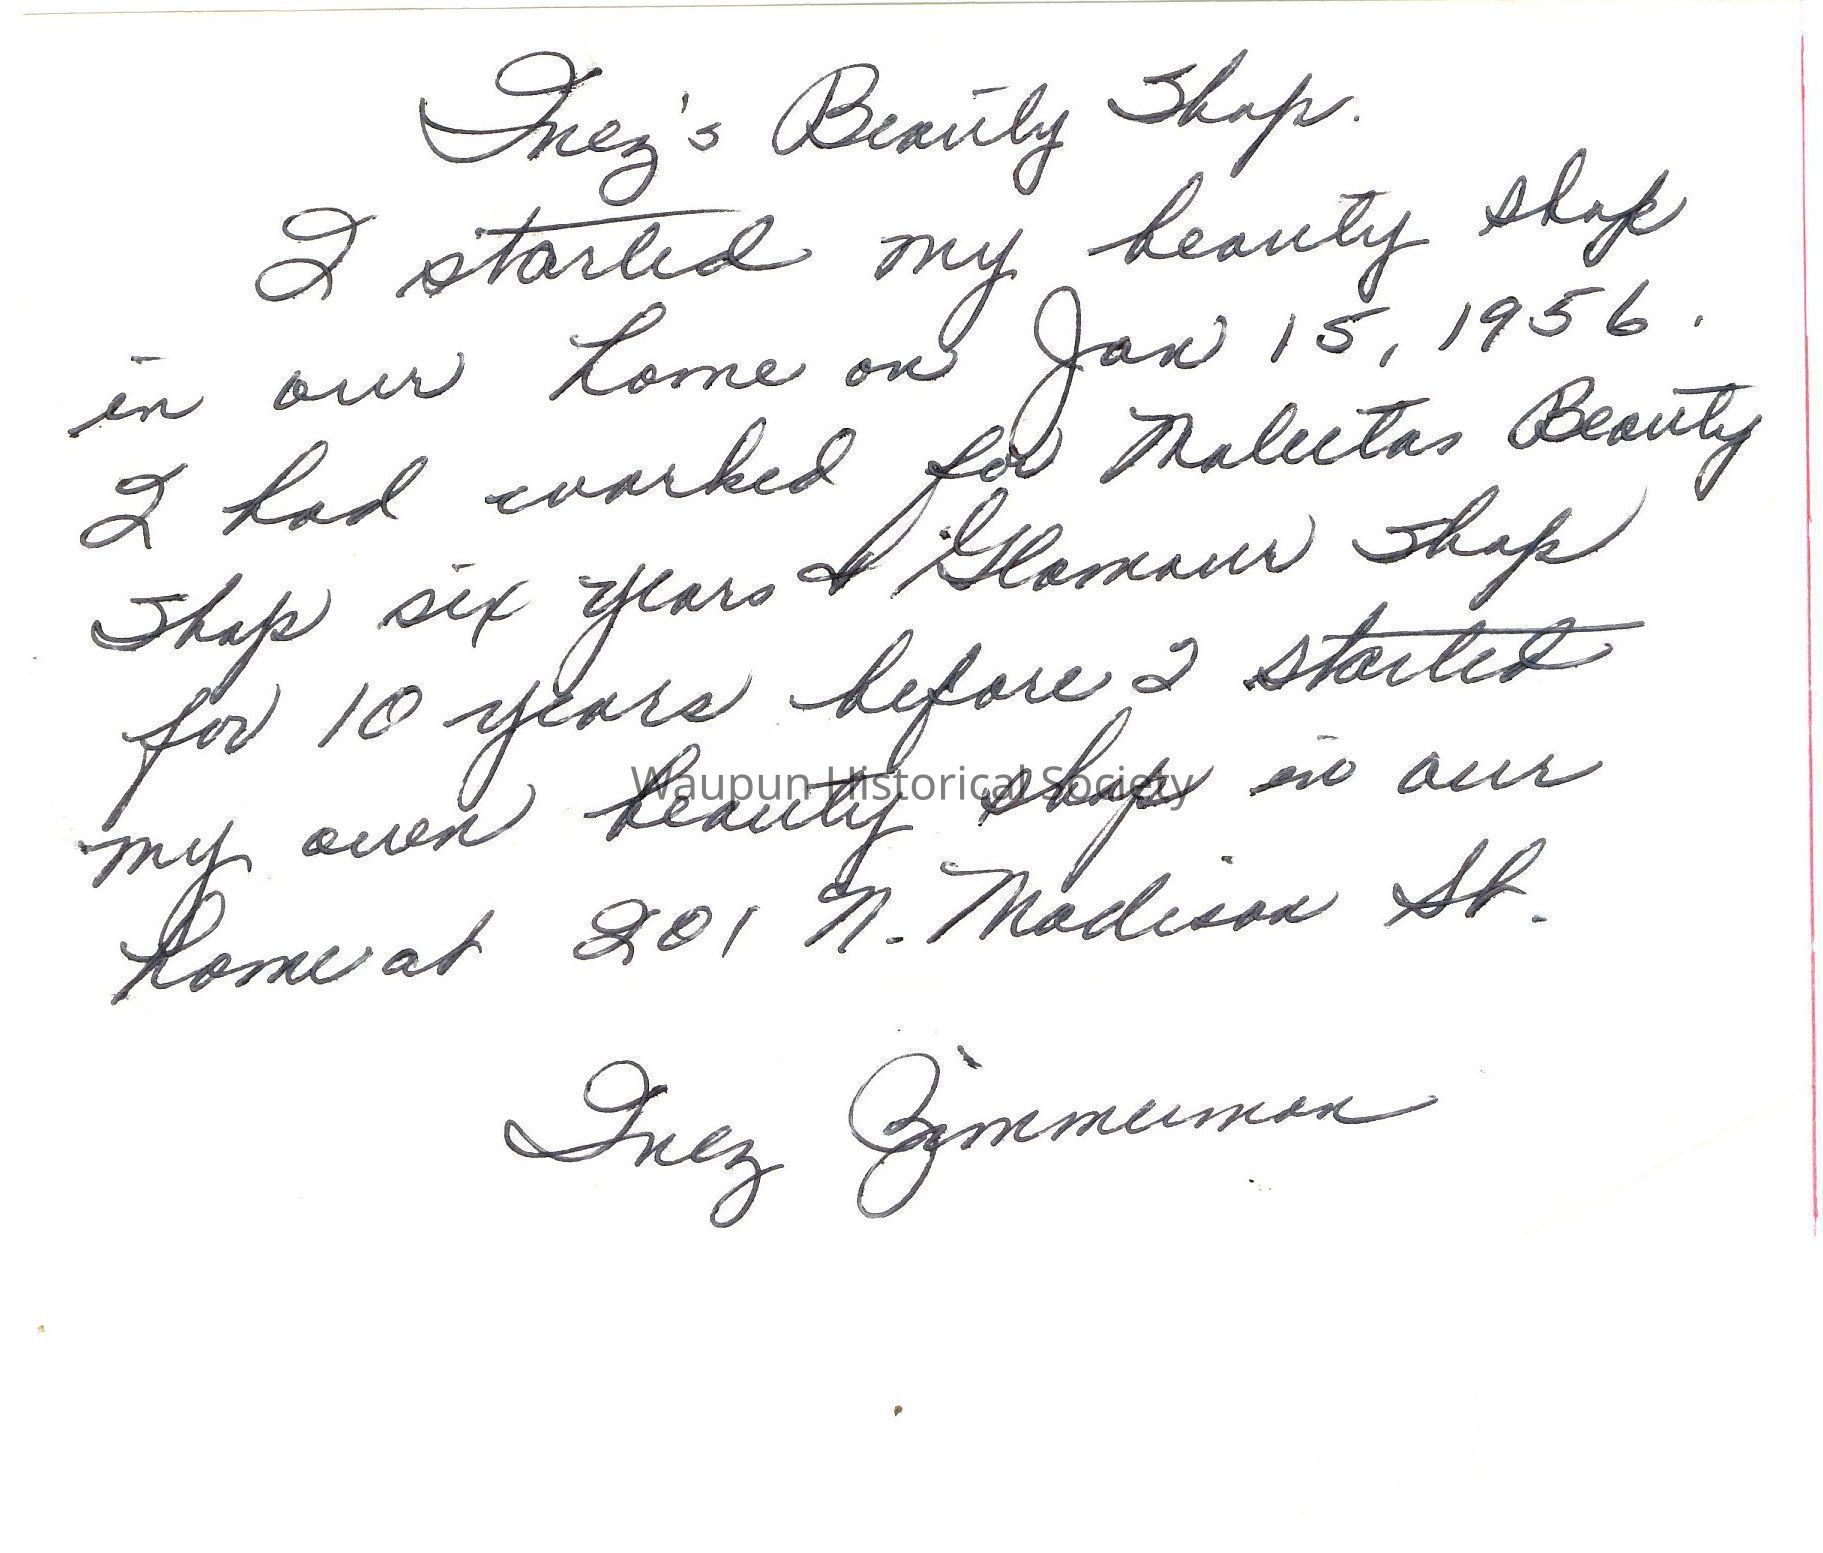 Inez's Beauty Shop.
I started my beauty shop
in our home on Jan 15, 1956.
I had worked for Maluitas Beauty
Shop six years & Glamour Shop
for 10 years before I started
my own beauty shop in our
Waupun Historical Society
home at 201 N. Madison St.
Inez Zimmerman